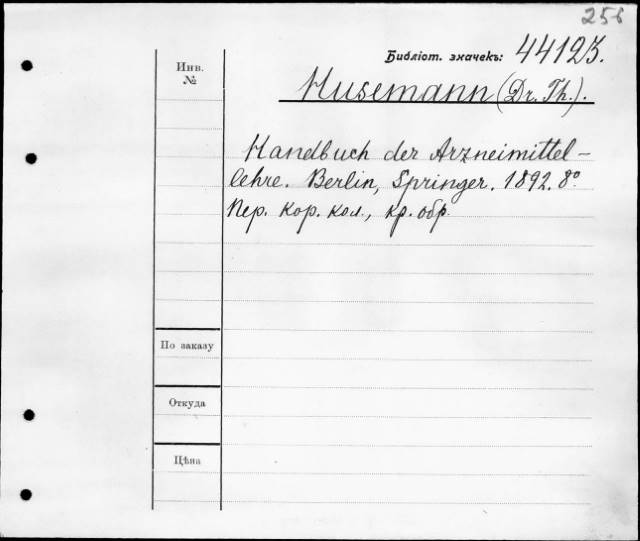 256
Библіот. значекъ: 44123.
Инв.
№
Husemann (Dr. Th.).
Handbuch der Arzneimittel-
lehre. Berlin, Springer. 1892. 8°
Пер. кор. кол., кр. обр.
По заказу
Откуда
Цѣна